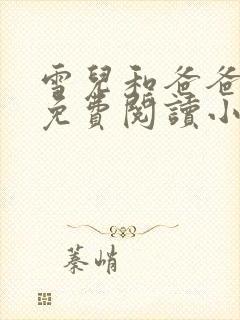 雪兒和爸爸
免費閱讀小
蓁峭